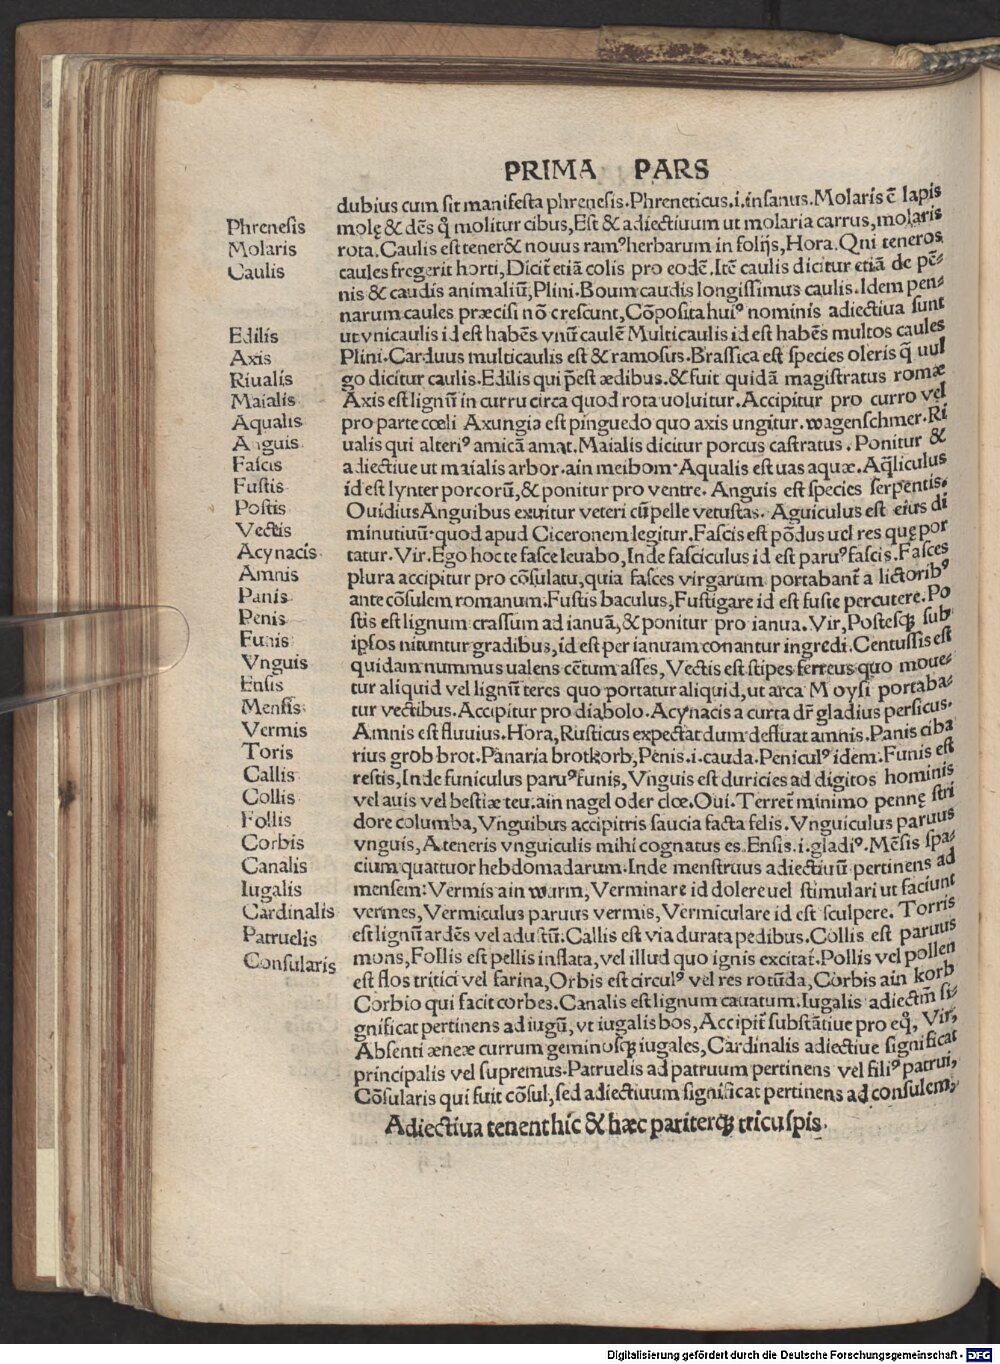 PRIMA PARS
dubius cum sit manifesta phrenesis.Phreneticus.i.insanus.Molaris ē lapis
Phrenesis
molę & dēs q̄ molitur cibus,Est & adiectiuum ut molaria carrus,molaris
Molaris
rota.Caulis est tener & nouus ramꝰ herbarum in folijs,Hora.Qni teneros
Caulis
caules fregerit horti,Dicit̄ etiā colis pro eodē.Itē caulis dicitur etiā de pē⸗
nis & caudis animaliū,Plini.Boum caudis longissimus caulis.Idem pen⸗
narum caules præcisi nō crescunt,Cōposita huiꝰ nominis adiectiua sunt
Edilis
ut vnicaulis id est habēs vnū caulē Multicaulis id est habēs multos caules
Axis
Plini.Carduus multicaulis est & ramosus.Brassica est species oleris q̄ uul
Riualis
go dicitur caulis.Edilis qui p̄est ædibus.& fuit quidā magistratus romæ
Maialis
Axis est lignū in curru circa quod rota uoluitur.Accipitur pro curro vel
Aqualis
pro parte cœli Axungia est pinguedo quo axis ungitur.wagenschmer.Ri
Anguis
ualis qui alteriꝰ amicā amat.Maialis dicitur porcus castratus.Ponitur &
Fascis
adiectiue ut maialis arbor.ain meibom.Aqualis est uas aquæ.Aq̄liculus
Fustis
id est lynter porcorū,& ponitur pro ventre.Anguis est species serpentis.
Postis
Ouidius Anguibus exuitur veteri cū pelle vetustas.Aguiculus est eius di
Vectis
minutiuū.quod apud Ciceronem legitur.Fascis est pōdus uel res quę por
Acynacis
tatur.Vir.Ego hoc te fasce leuabo,Inde fasciculus id est paruꝰ fascis.Fasces
Amnis
plura accipitur pro cōsulatu,quia fasces virgarum portabant̄ a lictoribꝰ
Panis
ante cōsulem romanum.Fustis baculus,Fustigare id est fuste percutere.Po
Penis
stis est lignum crassum ad ianuā,& ponitur pro ianua.Vir,Postesqꝫ sub
Funis
ipsos nituntur gradibus,id est per ianuam conantur ingredi.Centussis est
Vnguis
quidam nummus ualens cētum asses,Vectis est stipes ferreus quo moue⸗
Ensis
tur aliquid vel lignū teres quo portatur aliquid,ut arca Moysi portaba⸗
Mensis
tur vectibus.Accipitur pro diabolo.Acynacis a curta dr̄ gladius persicus.
Vermis
Amnis est fluuius.Hora,Rusticus expectat dum defluat amnis.Panis ciba
Toris
rius grob brot.Panaria brotkorb,Penis.i.cauda.Peniculꝰ idem.Funis est
Callis
restis,Inde funiculus paruꝰ funis,Vnguis est duricies ad digitos hominis
Collis
vel auis vel bestiæ teu.ain nagel oder cloe.Oui.Terret̄ minimo pennę stri
Follis
dore columba,Vnguibus accipitris saucia facta felis.Vnguiculus paruus
Corbis
vnguis,A teneris vnguiculis mihi cognatus es.Ensis.i.gladiꝰ.Mēsis spa⸗
Canalis
cium quattuor hebdomadarum.Inde menstruus adiectiuū pertinens ad
Iugalis
mensem:Vermis ain wurm,Verminare id dolere uel stimulari ut faciunt
Cardinalis
vermes,Vermiculus paruus vermis,Vermiculare id est sculpere.Torris
Patruelis
est lignū ardēs vel adustū.Callis est via durata pedibus.Collis est paruus
Consularis
mons,Follis est pellis inflata,vel illud quo ignis excitat̄.Pollis vel pollen
est flos tritici vel farina,Orbis est circulꝰ vel res rotūda,Corbis ain korb
Corbio qui facit corbes.Canalis est lignum cauatum.Iugalis adiectm̄ si⸗
gnificat pertinens ad iugū,vt iugalis bos,Accipit̄ substātiue pro eq̊,Vir,
Absenti æneæ currum geminosqꝫ iugales,Cardinalis adiectiue significat
principalis vel supremus.Patruelis ad patruum pertinens vel filiꝰ patrui,
Cōsularis qui fuit cōsul,sed adiectiuum significat pertinens ad consulem,
Adiectiua tenent hic & hæc pariterqꝫ tricuspis.
Digitalisierung gefördert durch die Deutsche Forschungsgemeinschaft - DFG